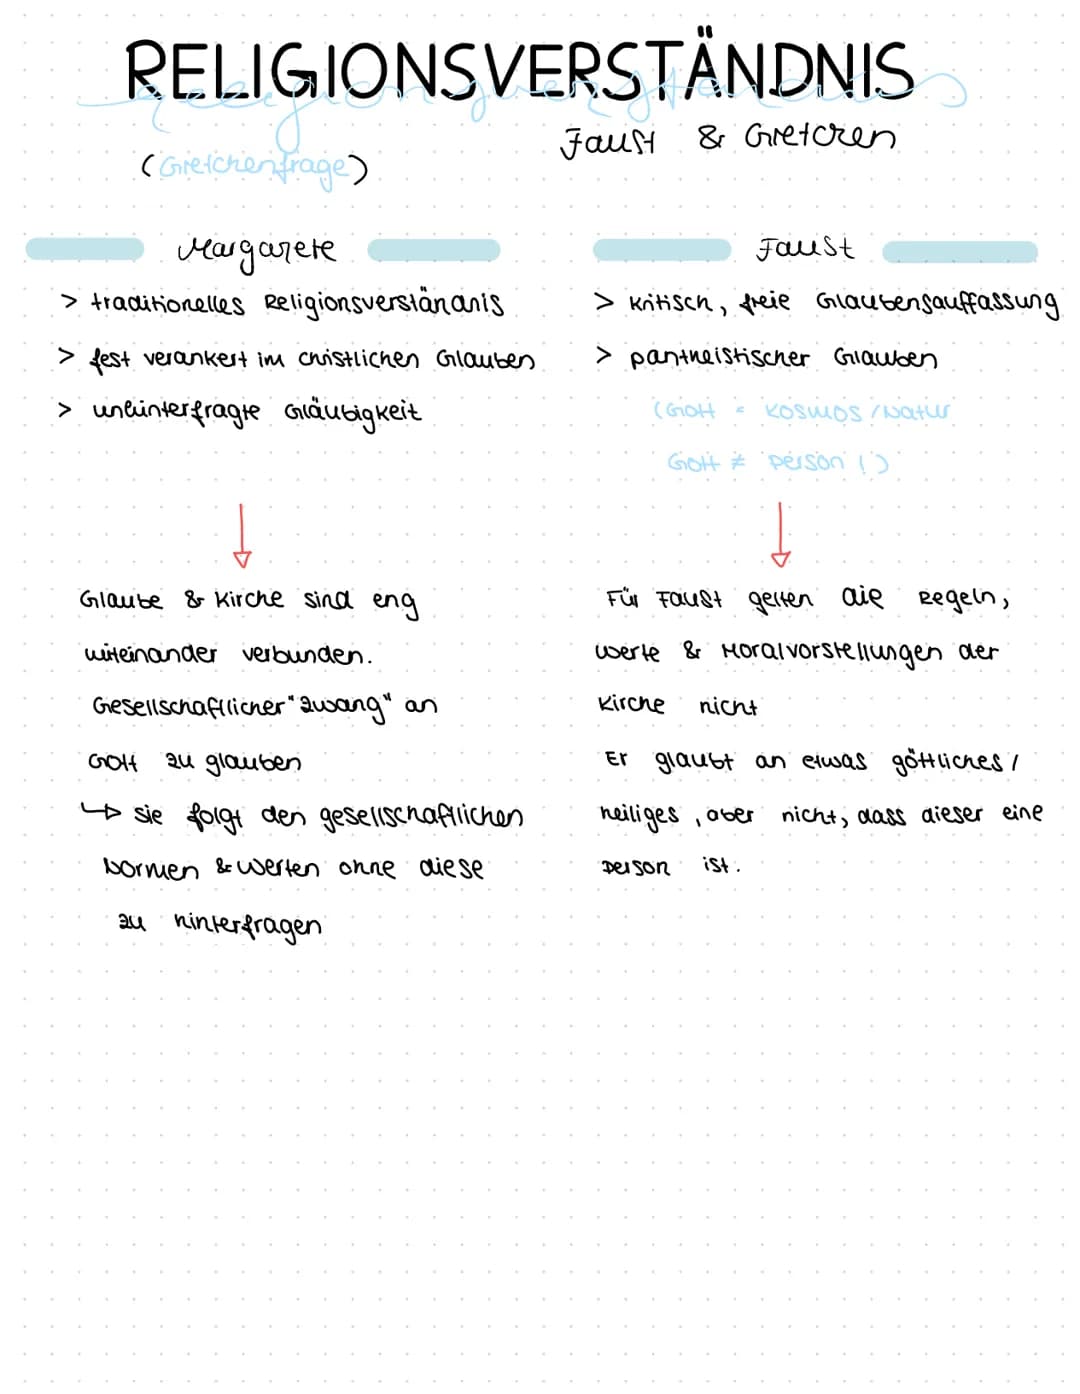 RELIGIONSVERSTÄNDNIS
Religionsverständnis
Faust & Gretchen
(Gretchenfrage)
Margarete
> traditionelles Religionsverständnis
> fest verankert im christlichen Glauben
> unhinterfragte Gläubigkeit
Glaube & Kirche sind eng
miteinander verbunden.
Gesellschaftlicher "Zwang" an
Gott zu glauben
↳ sie folgt den gesellschaftlichen
Normen & Werten ohne diese
zu hinterfragen
Faust
> kritisch, freie Glaubensauffassung
> pantheistischer Glauben
(Gott = Kosmos / Natur
Gott ≠ Person !)
Für Faust gelten die Regeln,
Werte & Moralvorstellungen der
Kirche nicht
Er glaubt an etwas göttliches /
heiliges, aber nicht, dass dieser eine
Person ist.